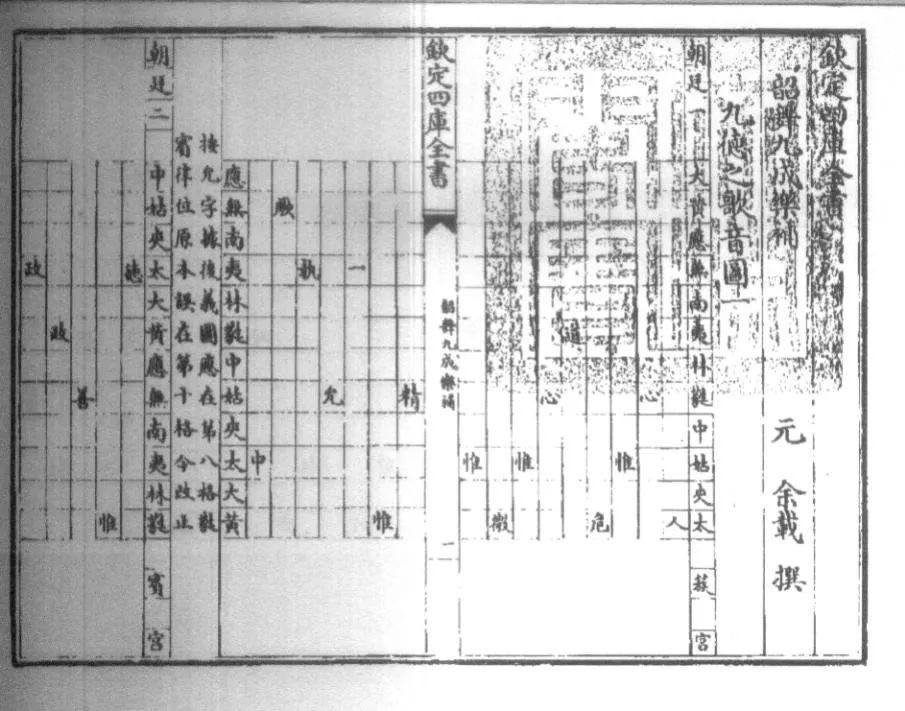 欽定四庫全書
韶舞九成樂補 元 余載 撰
九德之歌音圖
朝廷一 大黄應無南夷林蕤中姑夾太 蔟宮
人
心
惟
危
道
心
惟
微
惟
欽定四庫全書 韶舞九成樂補 一
精
惟
一
允
執
厥
中
應無南夷林蕤中姑夾太大黄
按允字據後義圖應在第八格蕤
賓律位原本誤在第十格今改正
朝廷二 中姑夾太大黄應無南夷林蕤 賓宮
德
惟
善
政
政